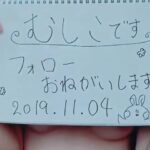 むしこです
フォロー
おねがいします
2019.11.04